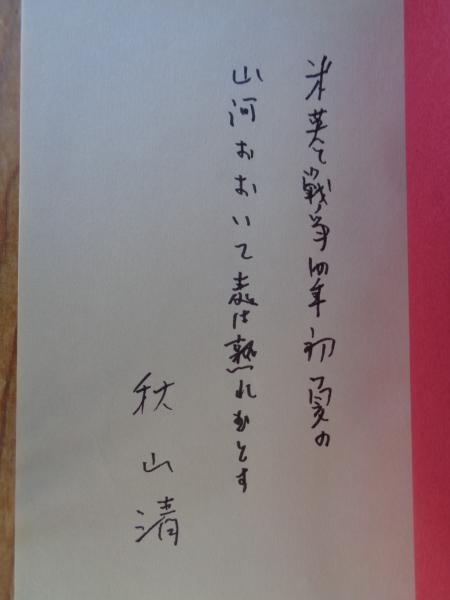 米英と戦争四年初夏の
山河おおいて麦は熟れむとす
秋山清